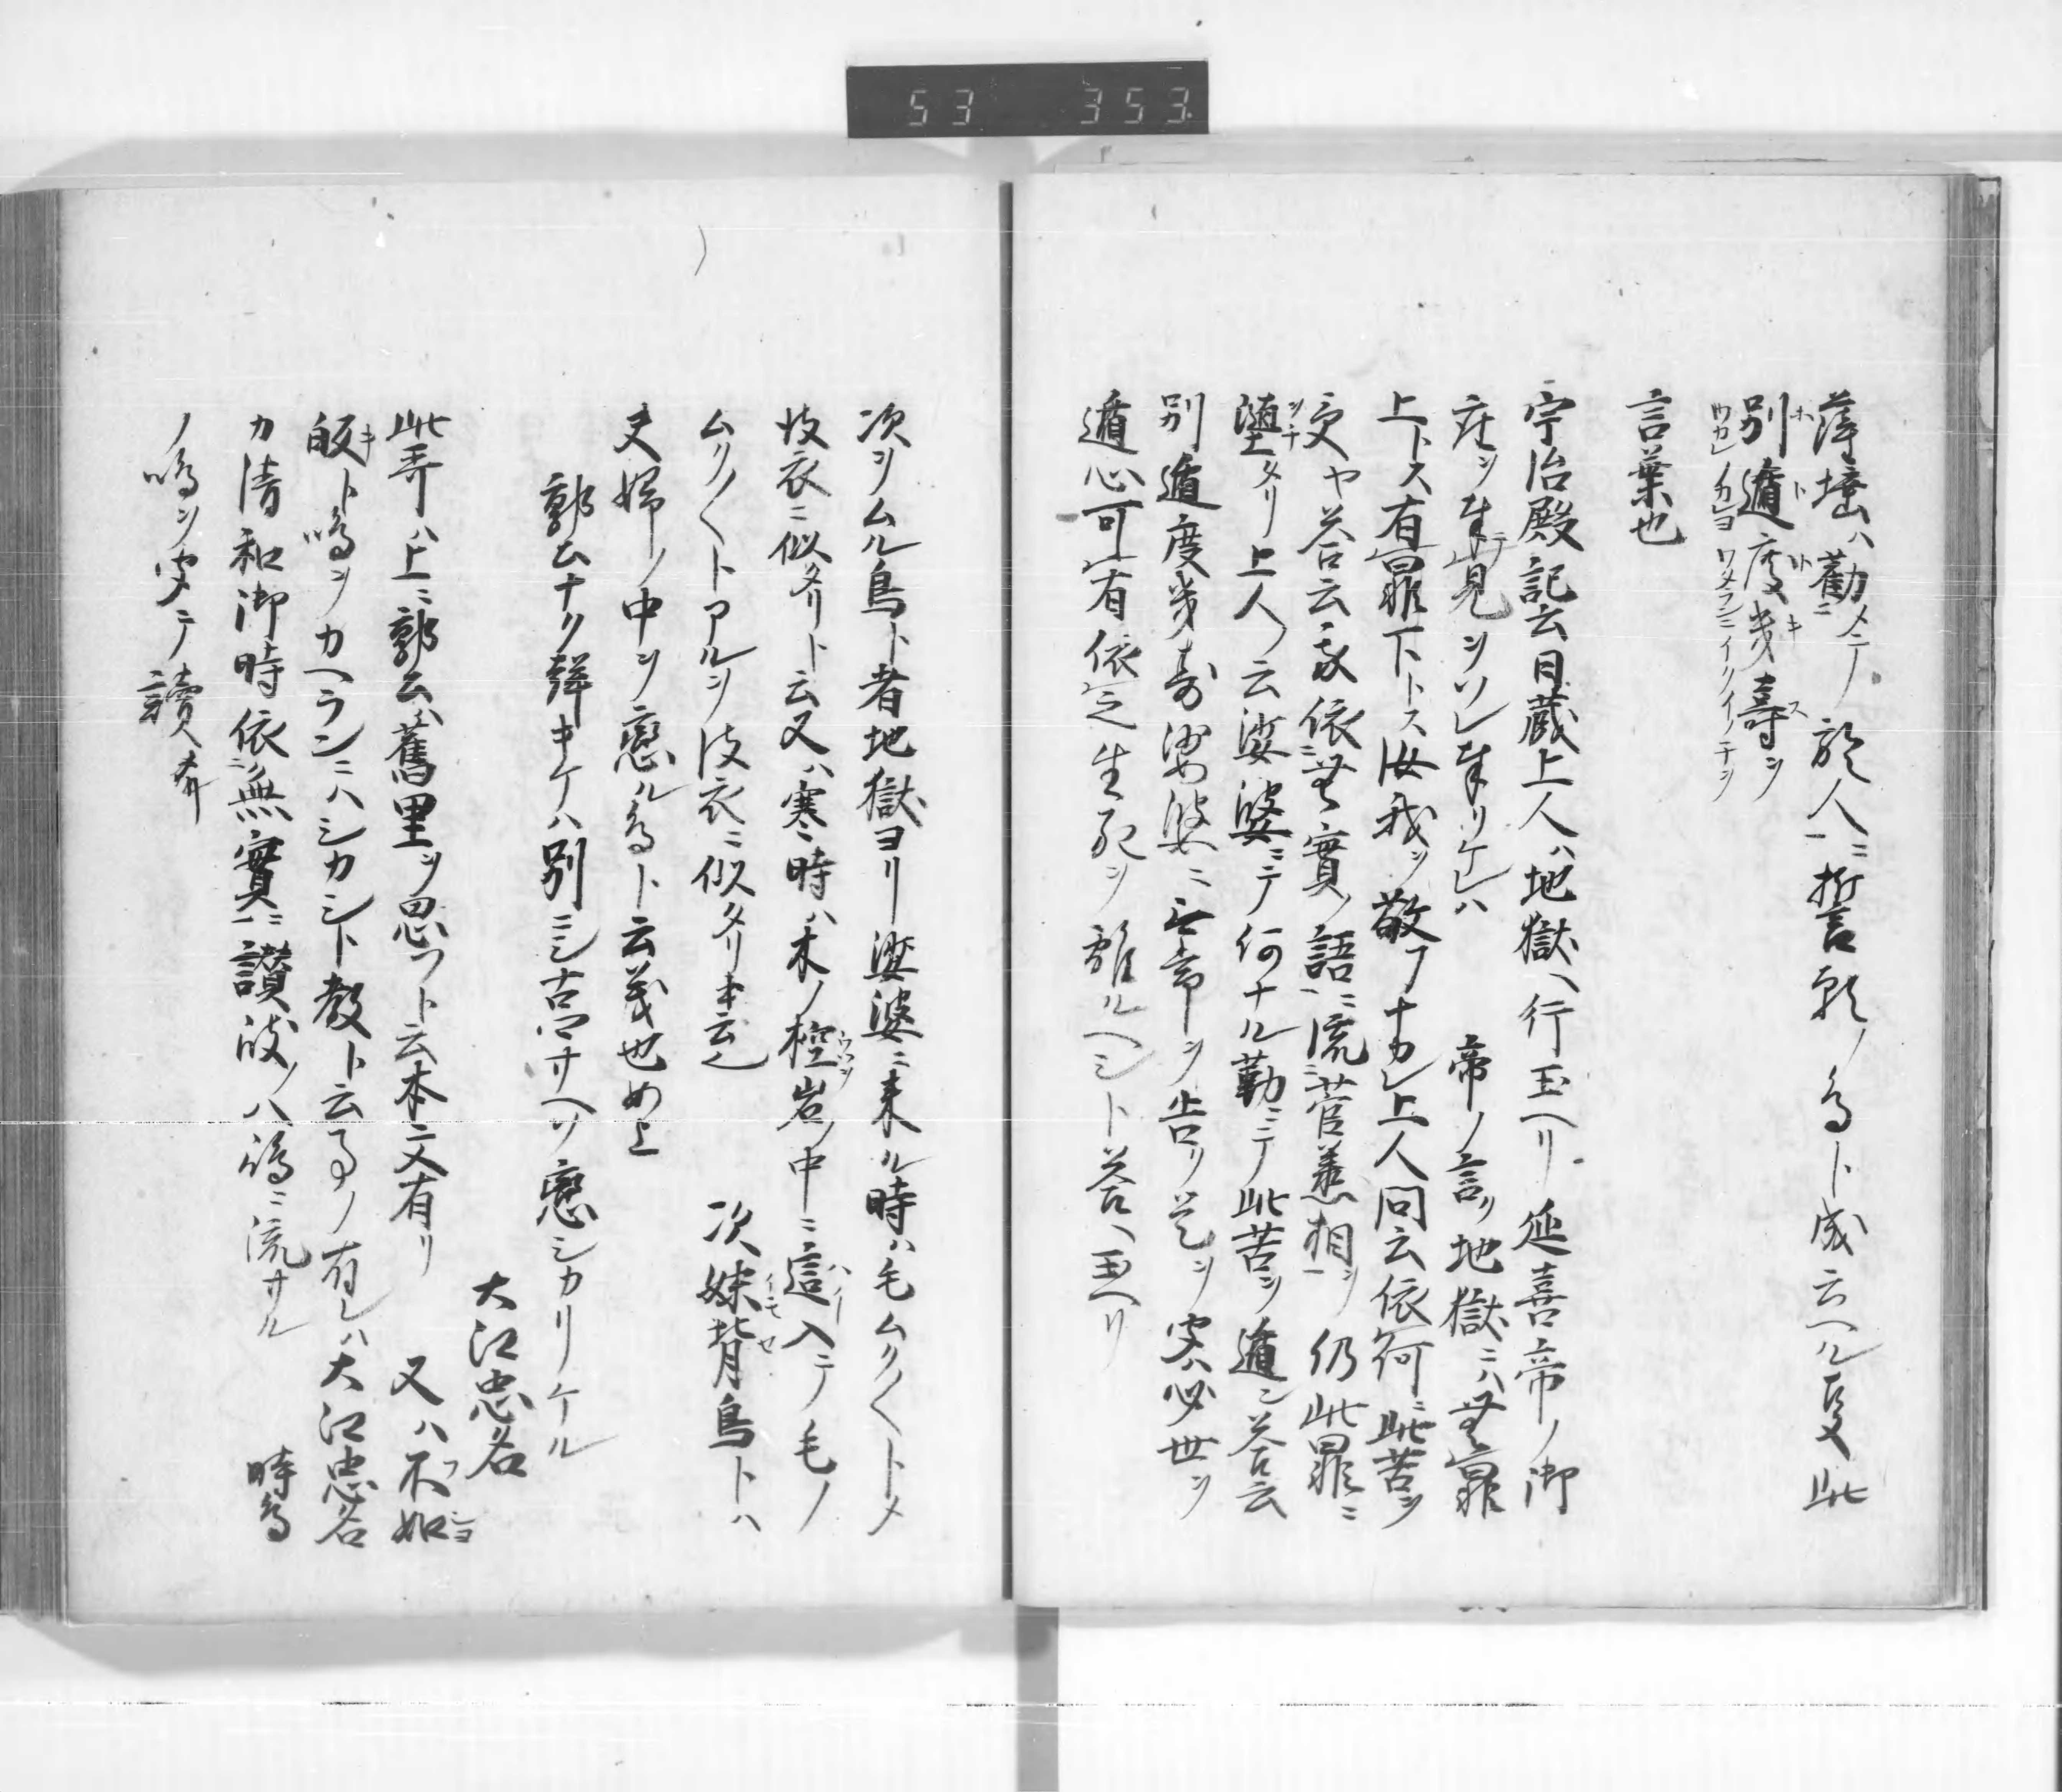 53 353
薩埵ハ勧メテ於人ニ誓願ノ為ト成云ヘル夏此
別遁度幾寿ヲ
ホトトキス
ウカレノカヨワタランイクイノチヲ
言葉也
宇治殿記云日蔵上人ハ地獄ヘ行玉ヘリ延喜帝ノ御
在ヲ奉見ソレ奉リケレハ 帝ノ言ク地獄ニハ無罪
上トス有罪下トス汝我ヲ敬フナカレ上人問云依何ニ此苦ヲ
受ヤ答云我依無実ノ語ニ流菅丞相ヲ仍此罪ニ
堕タリ上人云娑婆ニテ何ナル勤ニテ此苦ヲ遁ン答云
別遁度幾寿娑婆ニ無常ヲ告リ是ヲ安ハ必世ヲ
遁心可有依之生死ヲ離ルヘシト答ヘ玉ヘリ
次ソムル鳥ト者地獄ヨリ娑婆ニ来ル時ハ毛ムクムクトメ
皮衣ニ似タリト云又ハ寒時ハ木ノ椌岩ノ中ニ這入テ毛ノ
ムクムクトアルヲ皮衣ニ似タリ本云 次妹背鳥トハ
夫婦ノ中ヲ恋ル鳥ト云義也如上
郭公ナク声キケハ別ニシ古サヘソ恋シカリケル
大江忠名
此哥ハ上ニ郭公旧里ヲ思フト云本文有リ 又ハ不如
帰ト鳴ヲカヘランニハシカシト教ト云事ノ有レハ大江忠名
カ清和御時依無実ニ讃岐ノ八嶋ニ流サル 時鳥
ノ鳴ヲ安テ読哥